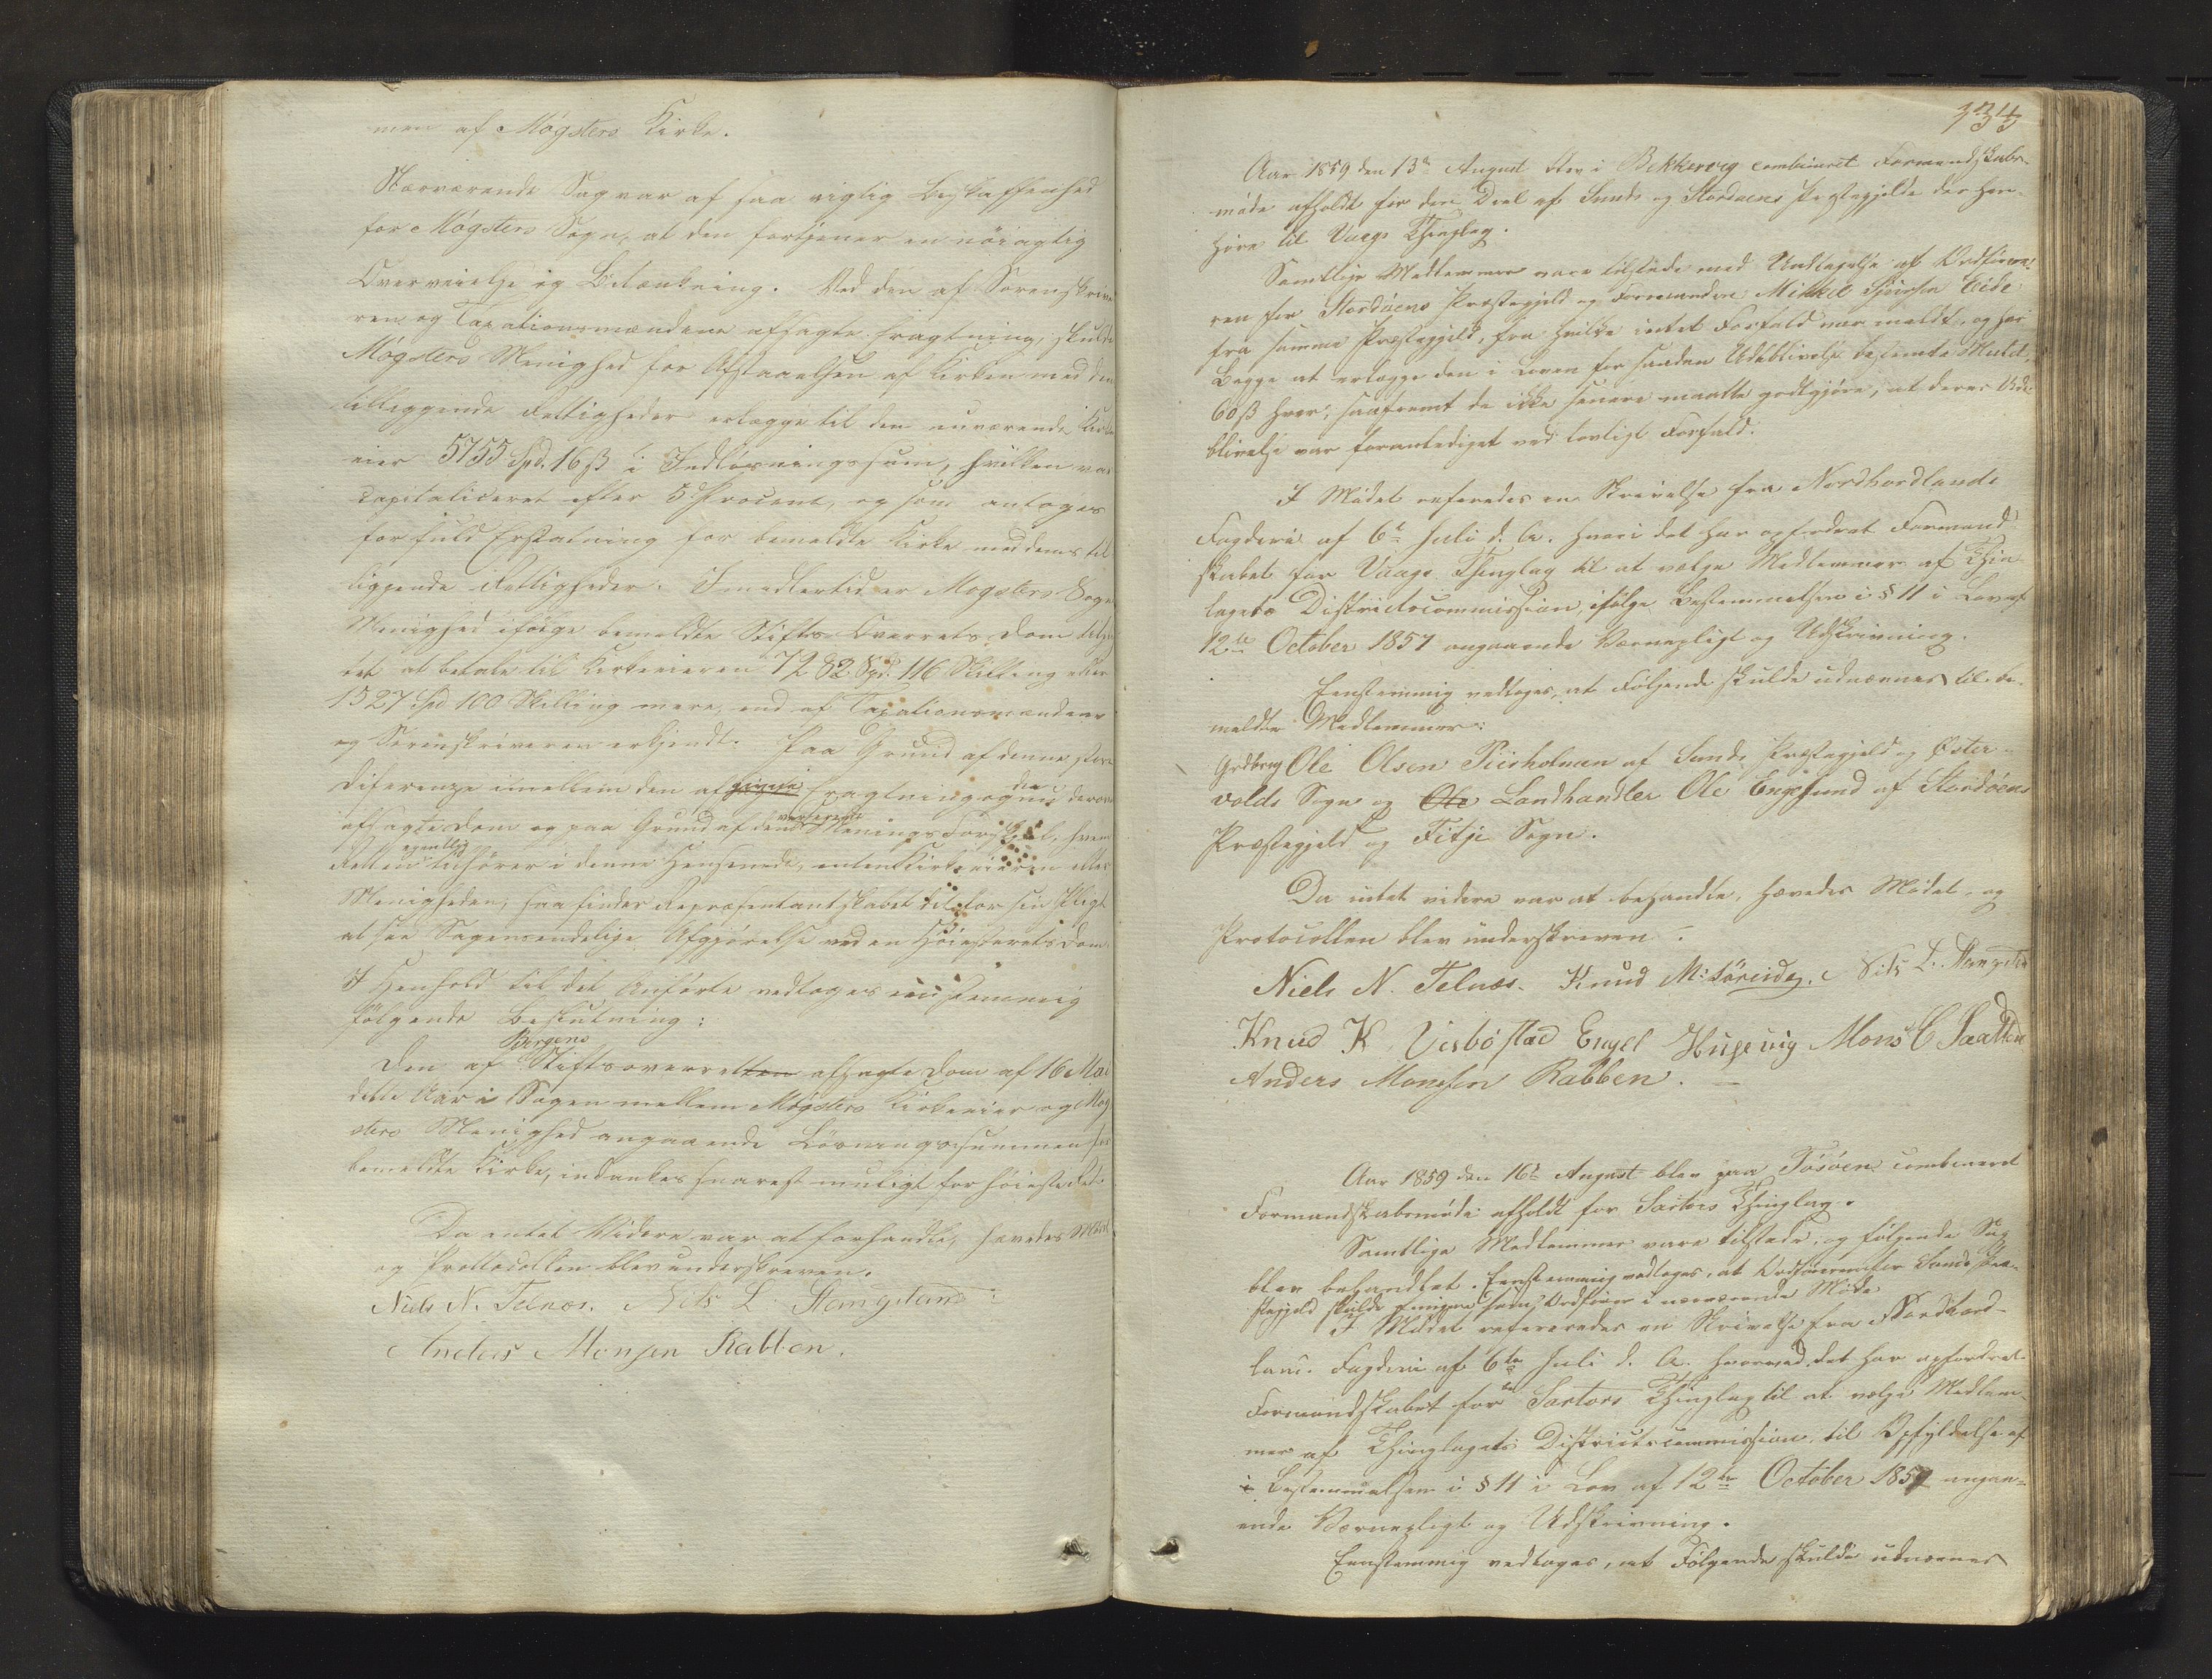 men af Møgsters Kirke.
Nærværende Sag var af saa vigtig Beskaffenhed
for Møgsters Sogn, at den fortjener en nöiagtig
Overveielse og Betænkning. Ved den af Sorenskrive
ren og Taxationsmændene afsagte Fragtning, skulde
Møgsters Menighed for Afstaaelsen af Kirken med den
tilliggende Rettigheder erlægge til den nuværende Kirke
eier 5755 Spd. 16 ß i Indløsningssum, hvilken var
capitaliceret efter 5 Procent, og som antoges
for fuld Erstatning for bemeldte Kirke med dens til
liggende Rettigheder. Imidlertid er Mogsters Sogns
Menighed ifølge bemeldte Stifts Overrets Dom
tet at betale til Kirkeeieren 7282 Spd. 116 Skilling eller
1527 Spd 100 Skilling mere, end af Taxationsmændene
og Sorenskriveren erkjendt. Paa Grund af denne store
Diferenze imellem den afgivne Fragtning og den derover
afsagte Dom og paa Grund af den Menings Forskjel, hvem
Retten egentlig tilhører i denne Henseende, enten Kirkeeieren eller
Menigheden, saa finder Repræsentantskabet det for sin Pligt
at see Sagens endelige Afgjørelse ved en Høiesterets Dom.
I Henhold til det Anførte vedtoges eenstemmig
følgende Beslutning:
Den af Bergens Stiftsoverretten afsagte Dom af 16 Mai
dette Aar i Sagen mellem Møgsters Kirkeeier og Møg
sters Menighed angaaende Løsningssummen for
bemeldte Kirke, indankes snarest muligt for Høiesteret.
Da intet Videre var at forhandle, hævedes Mødet
og Prottocollen blev underskreven.
Niels N. Telnæs. Nils L. Stangeland
Anders Monsen Rabben.
134
Aar 1859 den 13de August blev i Bekkervig combineret Formandskabs-
møde afholdt for den Deel af Sunds og Stordøens Præstegjelde der hen-
høre til Vaags Thinglag.
Samtlige Medlemmer vare tilstede med Undtagelse af Ordföre-
ren for Stordøens Præstegjeld og Formanden Mikkel Eide
fra samme Præstegjeld, fra hvilke intet Forfald var meldt, og har
Begge at erlægge den i Loven for saadan Udeblivelse bestemte Mulct,
60 ß hver, saafremt de ikke senere maatte godtgjøre, at deres Ude-
blivelse var foranlediget ved lovligt Forfald.
I Mödet refereredes en Skrivelse fra Nordhordlands
Fogderi af 6te Juli d. A. hvori det har opfordret Formand-
skabet for Vaags Thinglag til at vælge Medlemmer af Thin
lagets Districtscommission, ifølge Bestemmelsen i § 11 i Lov af
12te October 1857 angaaende Værnepligt og Udskrivning.
Eenstemmig vedtoges, at Følgende skulde udnævnes til be-
meldte Medlemmer:
Grdbrug Ole Olsen Piirholmen af Sunds Præstegjeld og Øster-
volds Sogn og Ole Landhandler Ole Engesund af Stordøens
Præstegjeld og Fitje Sogn.
Da intet videre var at behandle, hævedes Mödet, og
Protocollen blev underskreven.
Niels N. Telnæs. Knud M: Söreide. Nils L. Stangeland
Knud K. Visbö Engel Hugevig Mons C
Anders Monsen Rabben.
Aar 1859 den 16de August blev paa Tösöen combineret
Formandskabsmöde afholdt for Sartors Thinglag.
Samtlige Medlemmer vare tilstede, og følgende Sag
blev behandlet. Eenstemmig vedtoges, at Ordföreren for Sunds Præ-
stegjeld skulde fungere som Ordfører i nærværende Möde
I Mödet refereredes en Skrivelse fra Nordhord-
lands Fogderi af 6te Juli d. A. hvorved det har opfordret
Formandskabet for Sartors Thinglag til at vælge Medlem-
mer af Thinglagets Districtscommission, til Opfyldelse af
i Bestemmelsen i § 11 i Lov af 12te October 1857 angaa-
ende Værnepligt og Udskrivning.
Eenstemmig vedtoges, at Følgende skulde udnævnes